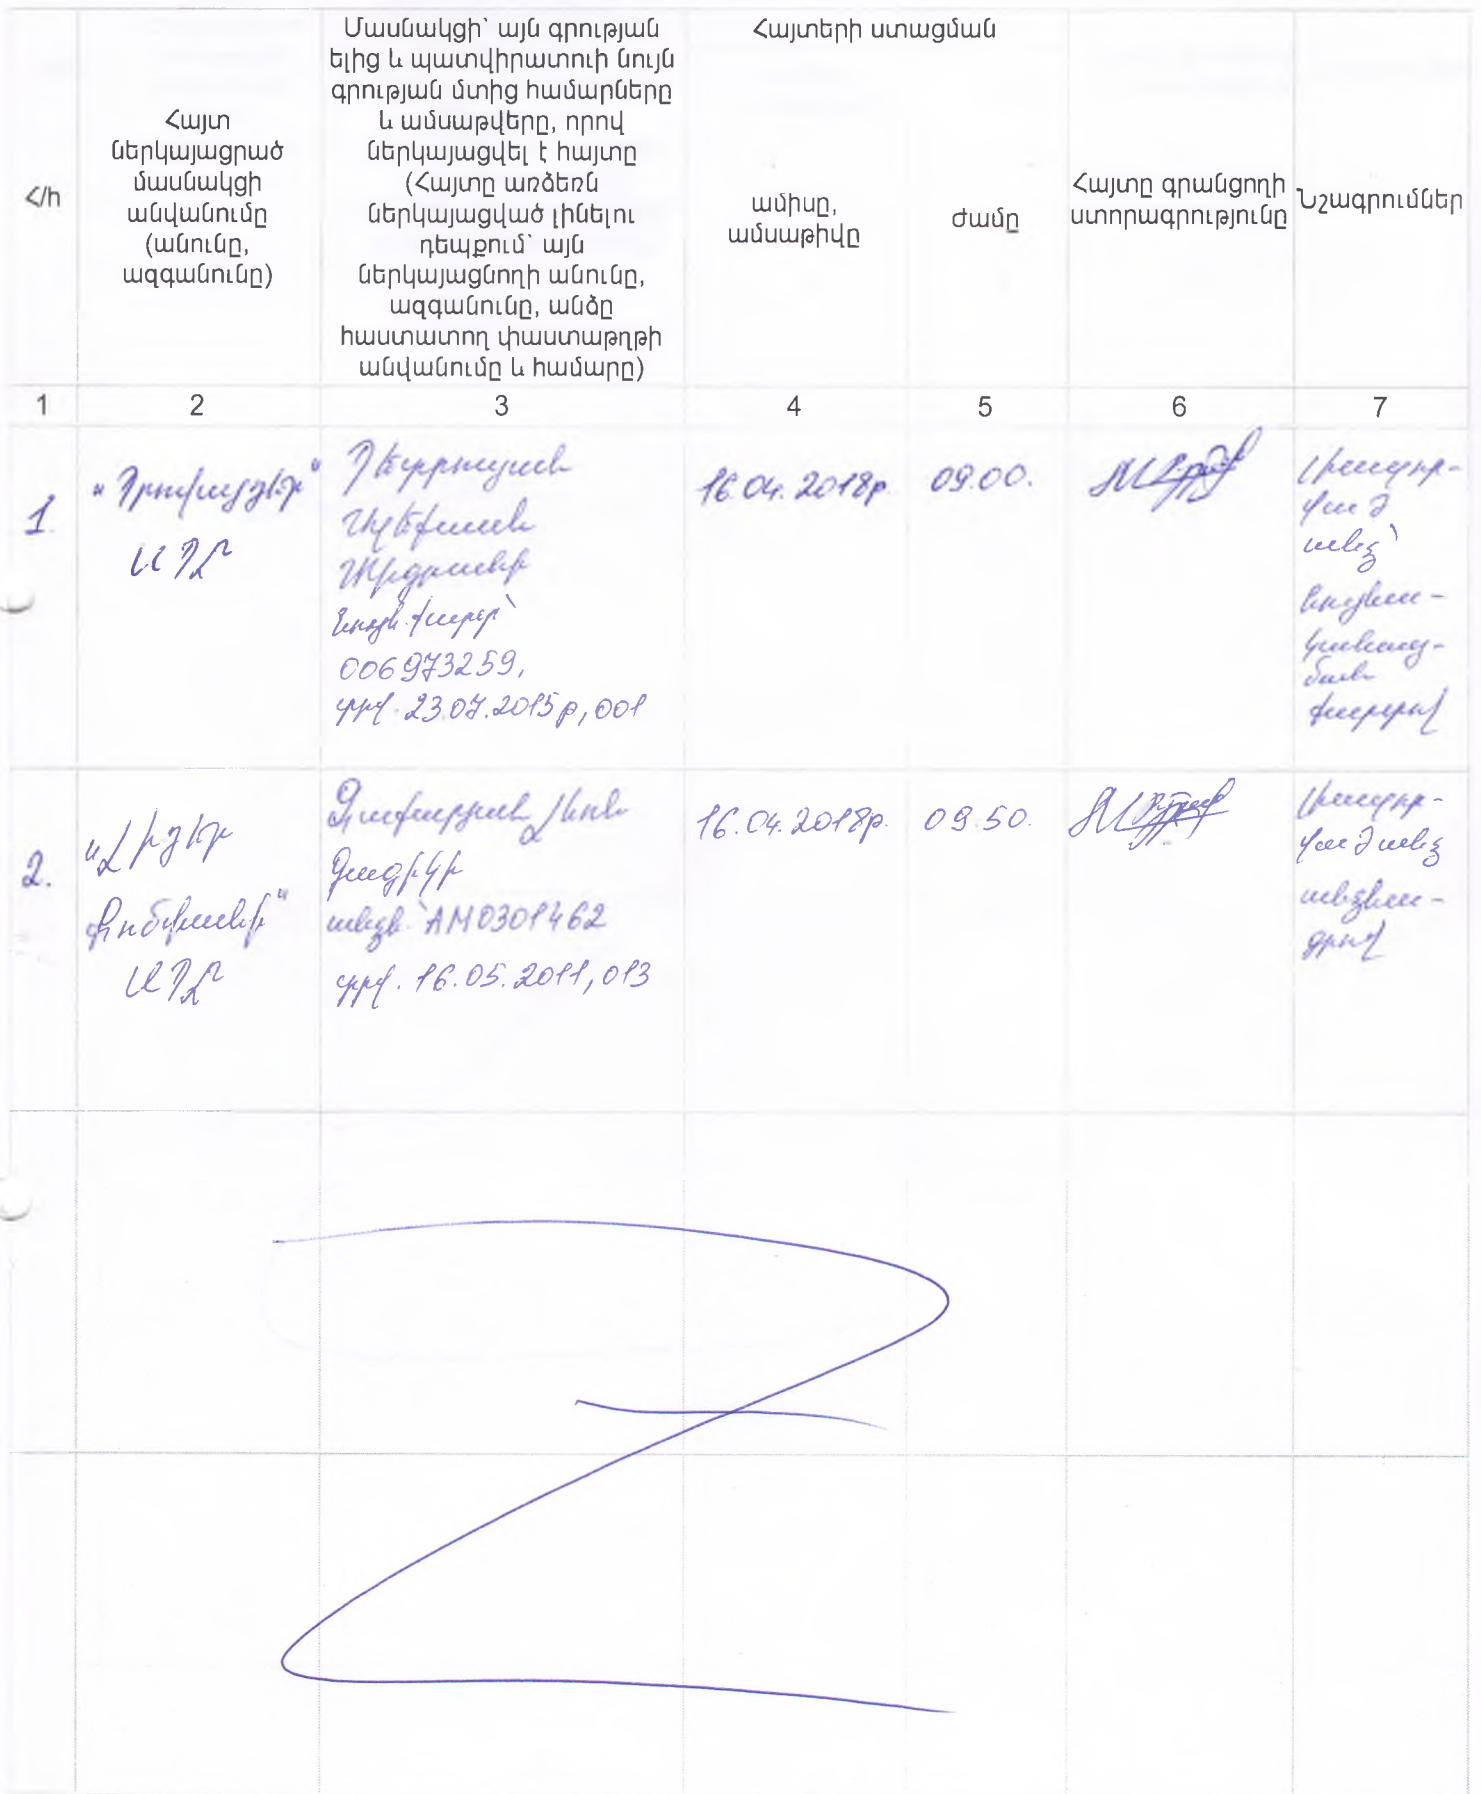 Հ/հ
Հայտ
ներկայացրած
մասնակցի
անվանումը
(անունը,
ազգանունը)
Մասնակցի՝ այն գրության
ելից և պատվիրատուի նույն
գրության մտից համարները
և ամսաթվերը, որով
ներկայացվել է հայտը
(Հայտը առձեռն
ներկայացված լինելու
դեպքում՝ այն
ներկայացնողի անունը,
ազգանունը, անձը
հաստատող փաստաթղթի
անվանումը և համարը)
Հայտերի ստացման
ամիսը,
ամսաթիվը
ժամը
Հայտը գրանցողի
ստորագրությունը
Նշագրումներ
1 2 3 4 5 6 7
1.
ՍՊԸ
Պետրոսյան
006973259,
տրվ. 23.07.2015թ, 001
16.04.2018թ.
09.00.
Լիազոր-
ված
անձ՝
նույնա-
կանաց-
ման
քարտով
2.
ՍՊԸ
Գագիկի
անձն.՝ AM0301462
տրվ. 16.05.2011, 013
16.04.2018թ.
09.50.
Լիազոր-
ված անձ
անձնա-
գրով